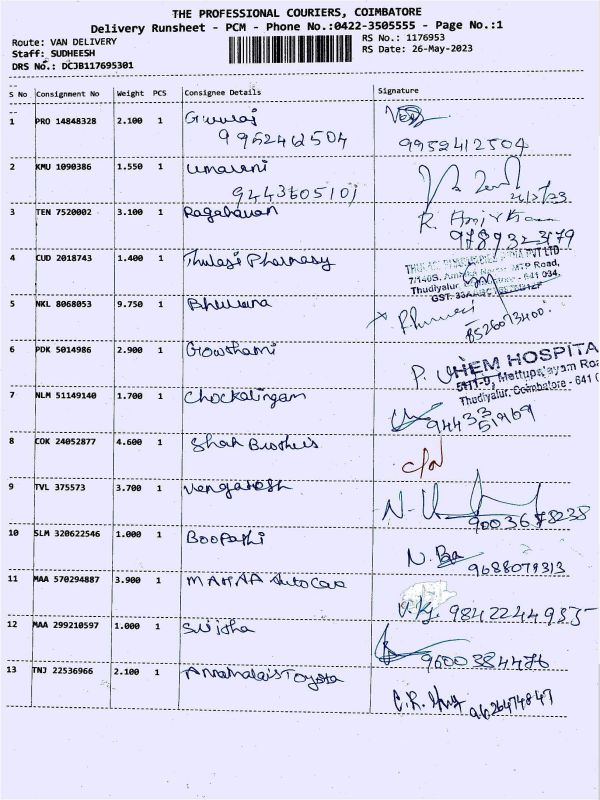 THE PROFESSIONAL COURIERS, COIMBATORE
Delivery Runsheet - PCM - Phone No.:0422-3505555 - Page No.:1
Route: VAN DELIVERY RS No.: 1176953
Staff: SUDHEESH RS Date: 26-May-2023
DRS No.: DCJB117695301
S No Consignment No Weight PCS Consignee Details Signature
1 PRO 14848328 2.100 1
9952462504 9952412504
2 KMU 1090386 1.550 1 Umarani
3 TEN 7520002 3.100 1 Ragahavan R.
4 CUD 2018743 1.400 1 Thulasi Pharmasy PVT LTD
MTP Road,
Thudiyalur - 641 034.
GST:
5 NKL 8068053 9.750 1 Bhuvana
8526013400
6 PDK 5014986 2.900 1 Gowthami P. HEM HOSPITA
Mettupalayam Roa
Thudiyalur, Coimbatore - 641 0
7 NLM 51149140 1.700 1 Chockalingam 94433
51969
8 COK 24052877 4.600 1 Shah Brothers
9 TVL 375573 3.700 1 Vengatesh N.
10 SLM 320622546 1.000 1 Boopathi N.
9688079313
11 MAA 570294887 3.900 1 MAHAA Autocar
9842244955
12 MAA 299210597 1.000 1
9600384476
13 TNJ 22536966 2.100 1 Annamalais Toyota C.R.
9626474847